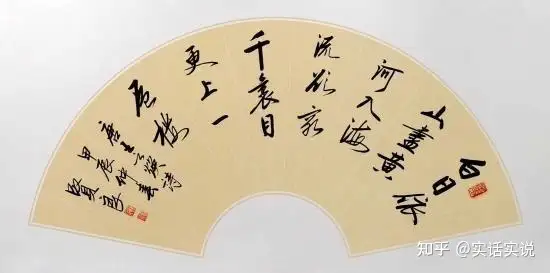 白日依
山盡黄
河入海
流欲窮
千裏目
更上一
层楼
唐王之涣诗
甲辰仲春
知乎 @实话实说